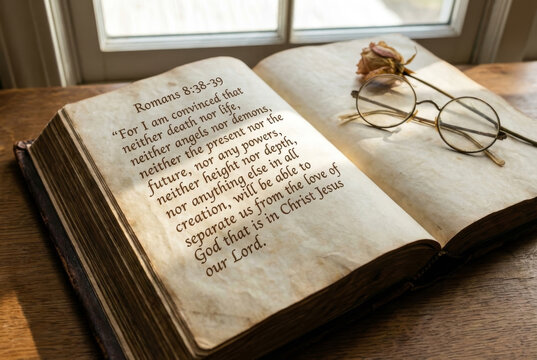 Romans 8:38-39
"For I am convinced that
neither death nor life,
neither angels nor demons,
neither the present nor the
future, nor any powers,
neither height nor depth,
nor anything else in all
creation, will be able to
separate us from the love of
God that is in Christ Jesus
our Lord.